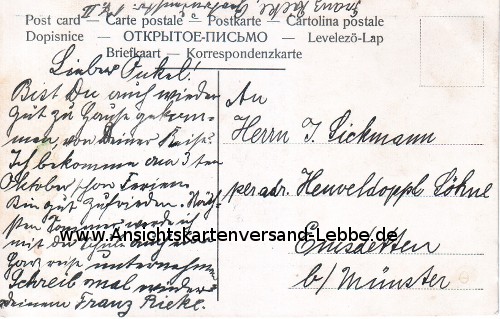 Franz Rieke
Post card — Carte postale — Postkarte — Cartolina postale
Dopisnice — ОТКРЫТОЕ-ПИСЬМО — Levelező-Lap
Briefkaart — Korrespondenzkarte
Lieber Onkel!
Bist Du auch wieder
gut zu Hause gekom-
men, von Deiner Reise.
Ich bekomme am 3 ten
Oktober schon Ferien.
Bin gut zufrieden. Näch-
sten Sommer werde ich
mit die Schule auch eine
Harz reise unternehmen
Schreib mal wieder
deinem Franz Rieke.
An
Herrn J. Sickmann
per adr. Heuveldopp Söhne
Emsdetten
b/ Münster
www.Ansichtskartenversand-Lebbe.de